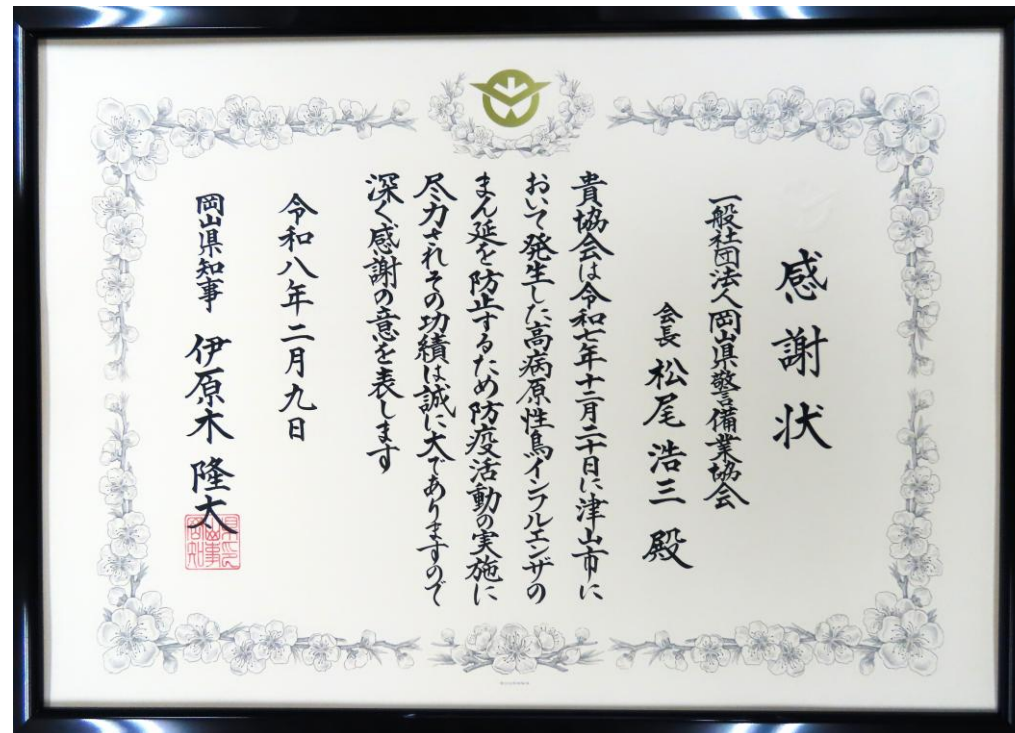 感謝状
一般社団法人岡山県警備業協会
会長 松尾浩三 殿
貴協会は令和七年十二月二十日に津山市に
おいて発生した高病原性鳥インフルエンザの
まん延を防止するため防疫活動の実施に
尽力されその功績は誠に大でありますので
深く感謝の意を表します
令和八年二月九日
岡山県知事 伊原木 隆太